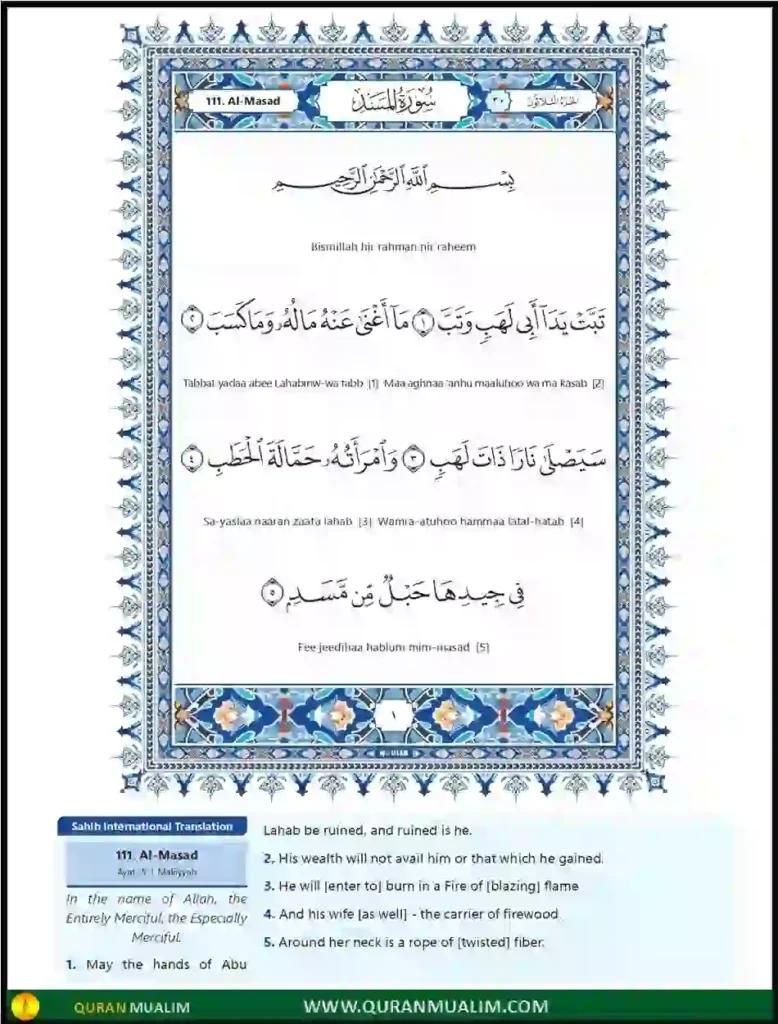 111. Al-Masad
سُورَةُ المَسَدِ
٣٠
الجُزءُ الثَّلَاثُونَ
بِسْمِ ٱللَّهِ ٱلرَّحْمَٰنِ ٱلرَّحِيمِ
Bismillah hir rahman nir raheem
تَبَّتْ يَدَآ أَبِى لَهَبٍ وَتَبَّ ١ مَآ أَغْنَىٰ عَنْهُ مَالُهُۥ وَمَا كَسَبَ ٢
Tabbat yadaa abee Lahabinw-wa tabb [1] Maa aghnaa 'anhu maaluhoo wa ma kasab [2]
سَيَصْلَىٰ نَارًا ذَاتَ لَهَبٍ ٣ وَٱمْرَأَتُهُۥ حَمَّالَةَ ٱلْحَطَبِ ٤
Sa-yaslaa naaran zaata lahab [3] Wamra-atuhoo hammaa latal-hatab [4]
فِى جِيدِهَا حَبْلٌ مِّن مَّسَدٍۭ ٥
Fee jeedihaa hablum mim-masad [5]
١
Sahih International Translation
111. Al-Masad
In the name of Allah, the
Entirely Merciful, the Especially
Merciful.
1. May the hands of Abu
Lahab be ruined, and ruined is he.
2. His wealth will not avail him or that which he gained.
3. He will [enter to] burn in a Fire of [blazing] flame
4. And his wife [as well] - the carrier of firewood.
5. Around her neck is a rope of [twisted] fiber.
QURAN MUALIM
WWW.QURANMUALIM.COM